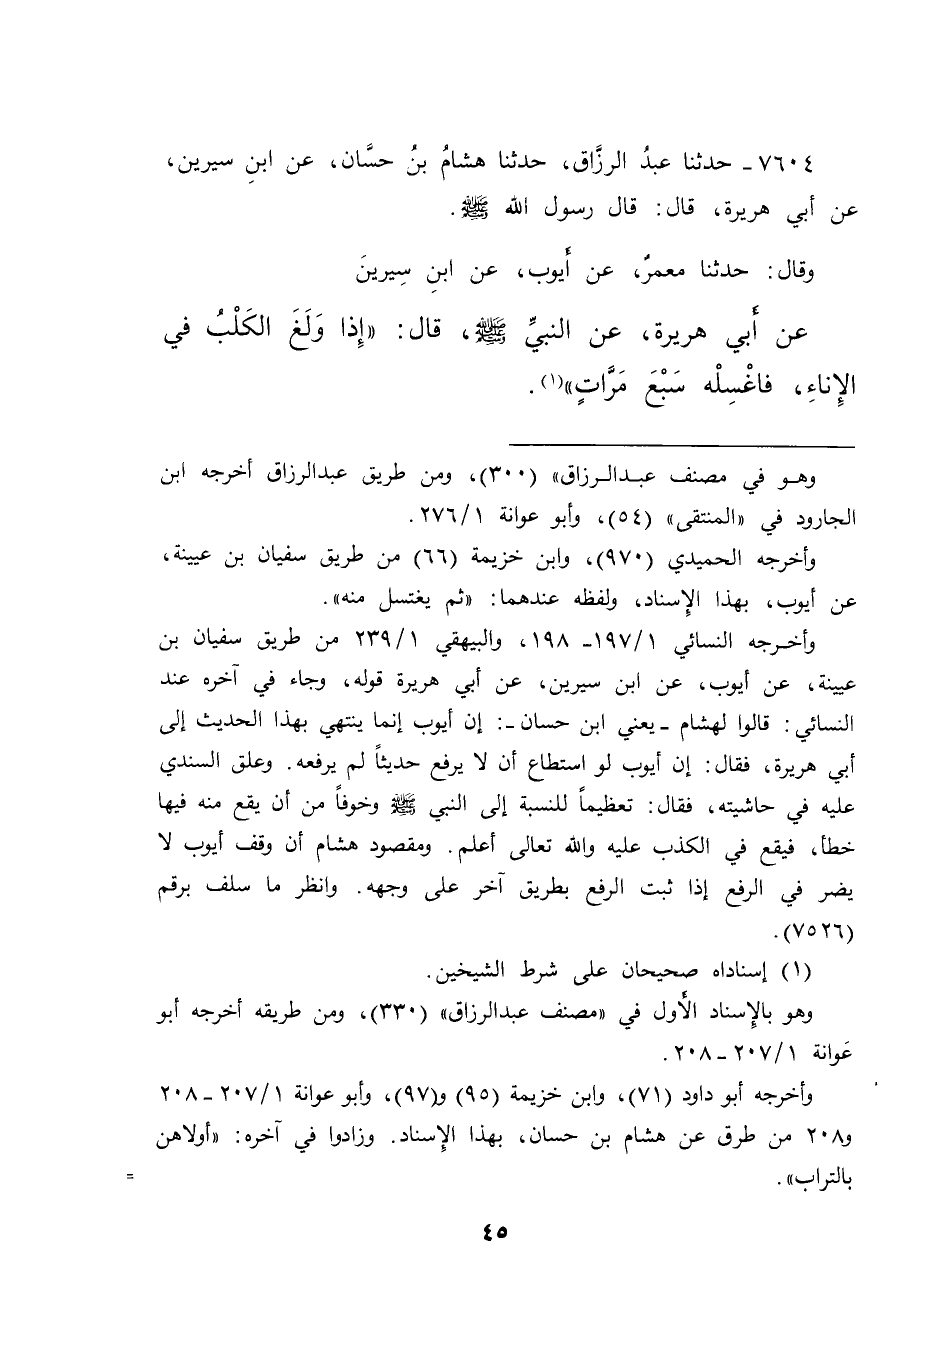 ٧٦٠٤ ـ حدثنا عبدُ الرزَّاق، حدثنا هشامُ بنُ حسَّان، عن ابنِ سيرين،
عن أبي هريرة، قال: قال رسول الله ﷺ.
وقال: حدثنا معمرٌ، عن أَيوب، عن ابنِ سِيرينَ
عن أَبي هريرة، عن النبيِّ ﷺ، قال: «إِذا وَلَغَ الكَلْبُ في
الإِناءِ، فاغْسِلْه سَبْعَ مَرَّاتٍ»(١).
وهـو في مصنف عبـدالـرزاق» (٣٠٠)، ومن طريق عبدالرزاق أخرجه ابن
الجارود في «المنتقى» (٥٤)، وأبو عوانة ٢٧٦/١.
وأخرجه الحميدي (٩٧٠)، وابن خزيمة (٦٦) من طريق سفيان بن عيينة،
عن أيوب، بهذا الإِسناد، ولفظه عندهما: «ثم يغتسل منه».
وأخـرجه النسائي ١٩٧/١ـ ١٩٨، والبيهقي ٢٣٩/١ من طريق سفيان بن
عيينة، عن أيوب، عن ابن سيرين، عن أبي هريرة قوله، وجاء في آخره عند
النسائي: قالوا لهشام ـ يعني ابن حسان ـ: إن أيوب إنما ينتهي بهذا الحديث إلى
أبي هريرة، فقال: إن أيوب لو استطاع أن لا يرفع حديثاً لم يرفعه. وعلق السندي
عليه في حاشيته، فقال: تعظيماً للنسبة إلى النبي ﷺ وخوفاً من أن يقع منه فيها
خطأ، فيقع في الكذب عليه والله تعالى أعلم. ومقصود هشام أن وقف أيوب لا
يضر في الرفع إذا ثبت الرفع بطريق آخر على وجهه. وانظر ما سلف برقم
(٧٥٢٦).
(١) إسناداه صحيحان على شرط الشيخين.
وهو بالإِسناد الأَول في «مصنف عبدالرزاق» (٣٣٠)، ومن طريقه أخرجه أبو
عَوانة ٢٠٧/١ ـ ٢٠٨.
وأخرجه أبو داود (٧١)، وابن خزيمة (٩٥) و(٩٧)، وأبو عوانة ٢٠٧/١ ـ ٢٠٨
و٢٠٨ من طرق عن هشام بن حسان، بهذا الإِسناد. وزادوا في آخره: «أولاهن
بالتراب». =
٤٥